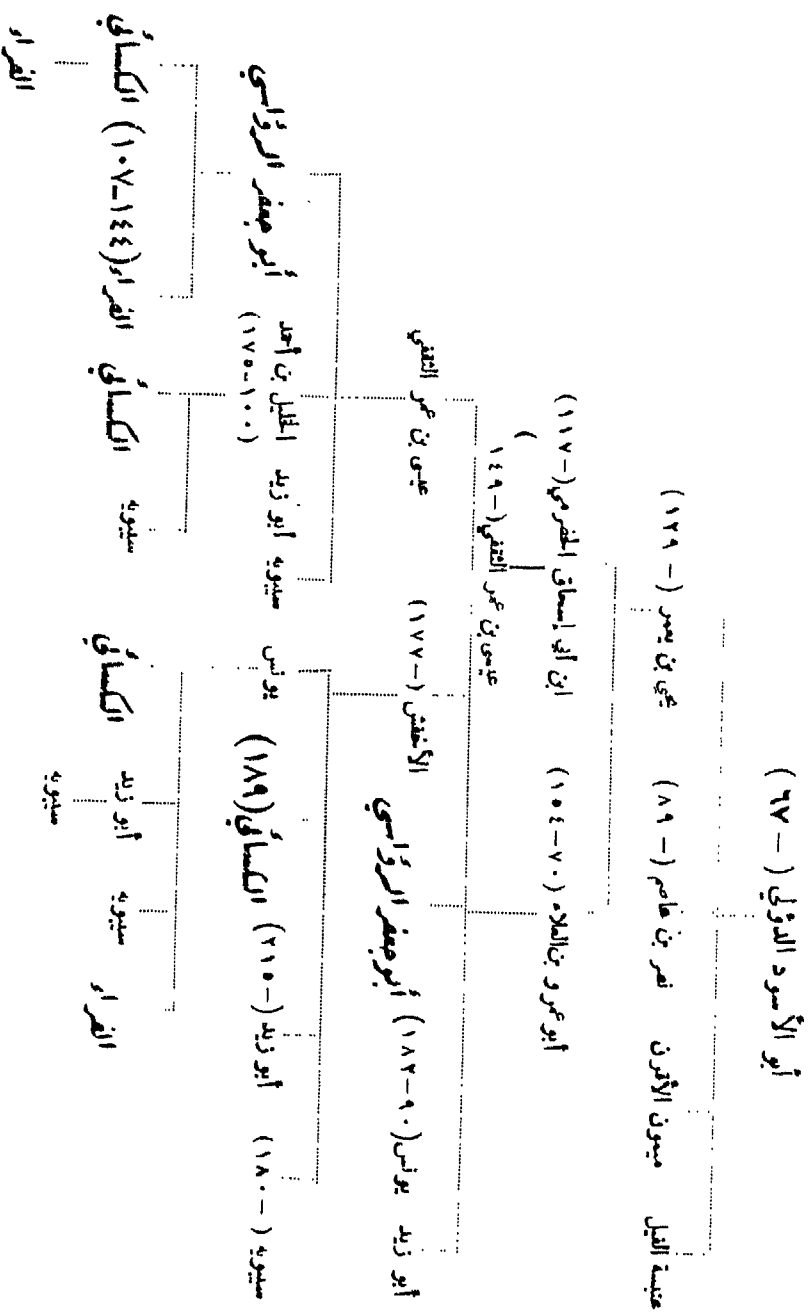 أبو الأسود الدؤلي ( – ٦٧)
عنبسة الفيل ميمون الأقرن نصر بن عاصم ( – ٨٩) يحيى بن يعمر ( – ١٢٩)
أبو عمرو بن العلاء (٧٠ – ١٥٤) ابن أبي إسحاق الحضرمي ( – ١١٧)
عيسى بن عمر الثقفي ( – ١٤٩
)
أبو زيد يونس (٩٠ – ١٨٢) أبو جعفر الرؤاسي الأخفش ( – ١٧٧) عيسى بن عمر الثقفي
سيبويه ( – ١٨٠) أبو زيد ( – ٢١٥) الكسائي (١٨٩) يونس سيبويه أبو زيد الخليل بن أحمد أبو جعفر الرؤاسي
(١٠٠ – ١٧٥)
الفراء سيبويه أبو زيد الكسائي سيبويه الكسائي الفراء (١٤٤ – ١٠٧) الكسائي
سيبويه
الفراء